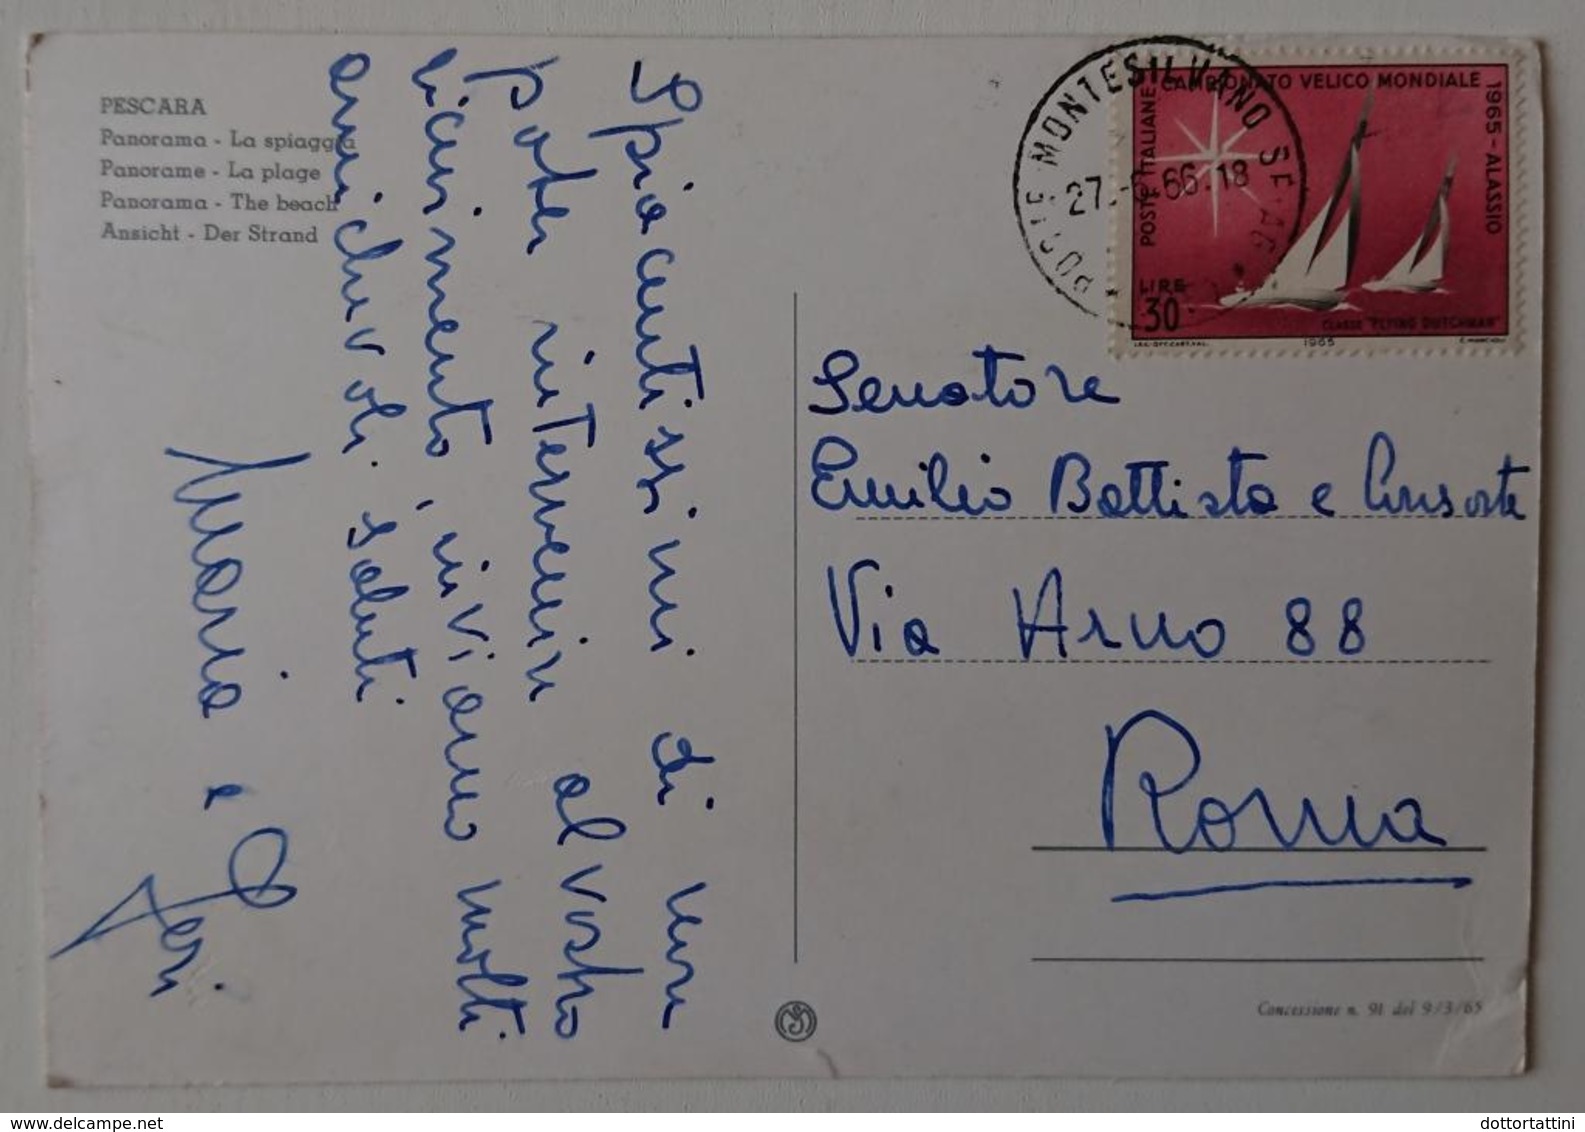 PESCARA
Panorama - La spiaggia
Panorame - La plage
Panorama - The beach
Ansicht - Der Strand
Spiacentissimi di non
poter intervenire al vostro
ricevimento, inviamo molti
amichevoli saluti
Maria e
POSTE MONTESILVANO
27. 66.18
POSTE ITALIANE
CAMPIONATO VELICO MONDIALE
1965 - ALASSIO
LIRE
30
CLASSE "FLYING DUTCHMAN"
I.P.S.-OFF.CARTE VAL.
1965
E. MANCIOLI
Senatore
Emilio Battista e Consorte
Via Arno 88
Roma
Concessione n. 91 del 9/3/65
dottortattini